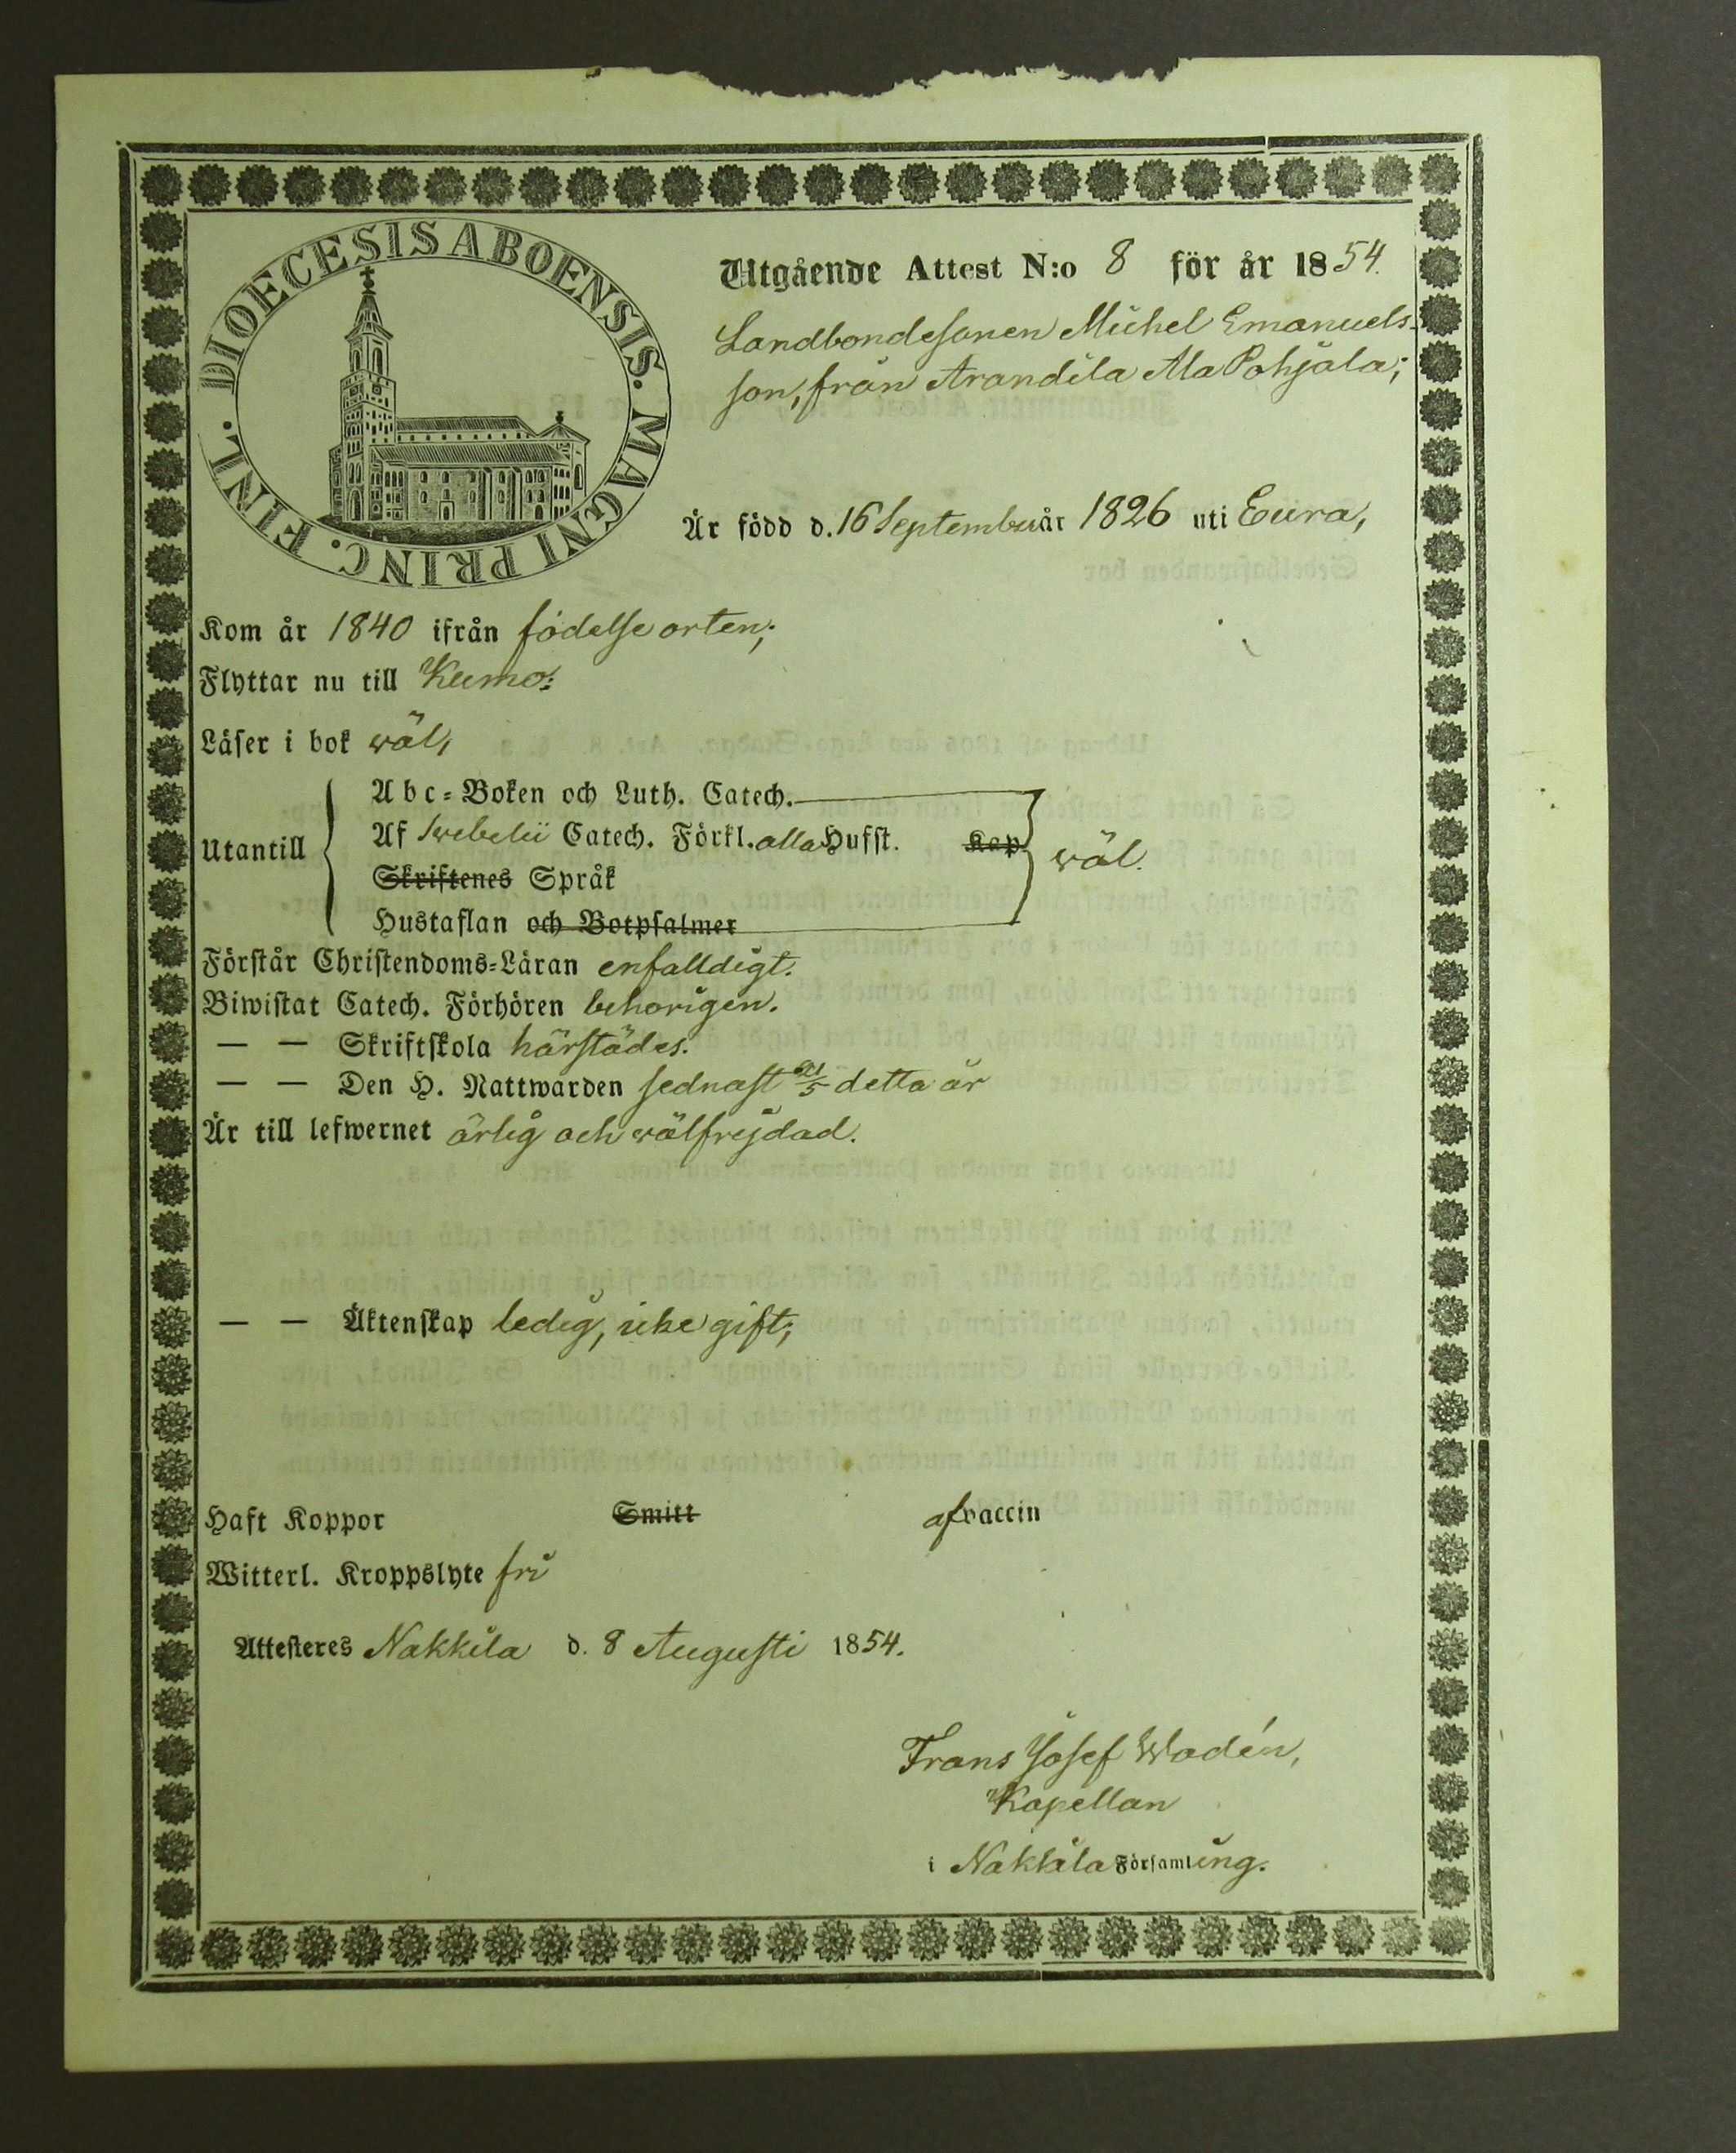 DIOECESIS ABOENSIS. MAGNI PRINC. FINL.
Utgående Attest N:o 8 för år 1854.
Landbondesonen Michel Emanuels-
son, från Arandila Ala Pohjala;
Är född d. 16 September år 1826 uti Eura,
Kom år 1840 ifrån födelse orten;
Flyttar nu till Kumo:
Läser i bok wäl,
Utantill
Abc-Boken och Luth. Catech.
Af Swebelii Catech. Förkl. alla Hufst. Kap.
Skriftenes Språk
Hustaflan och Botpsalmer
wäl.
Förstår Christendoms-Läran enfalldigt.
Biwistat Catech. Förhören behörigen.
— — Skriftskola härstädes.
— — Den H. Nattwarden sednast 21/5 detta år
Är till lefwernet ärlig och wälfrejdad.
— — Äktenskap ledig, icke gift;
Haft Koppor Smitt af vaccin
Witterl. Kroppslyte fri
Attesteres Nakkila d. 8 Augusti 1854.
Frans Josef Wadén,
Kapellan
i Nakkila Församling.